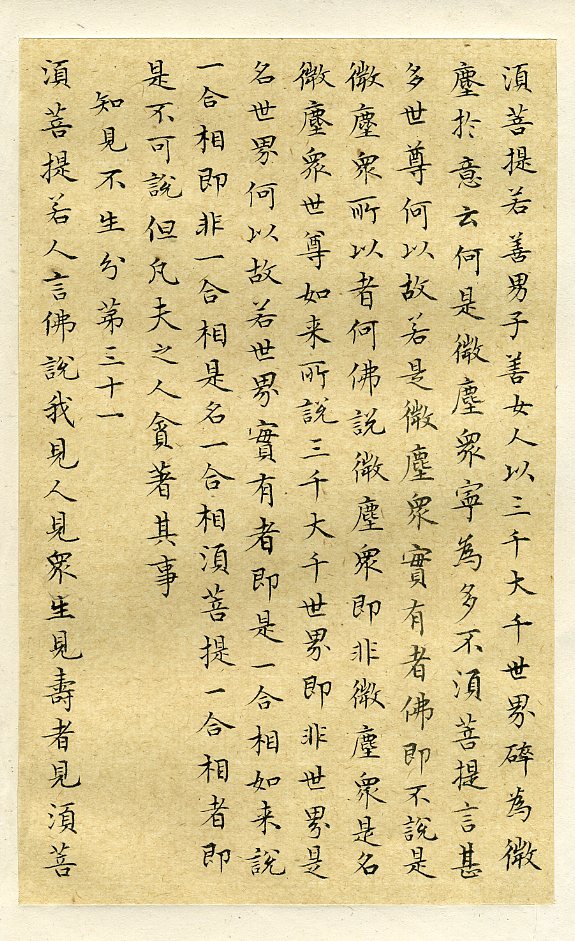 須菩提若善男子善女人以三千大千世界碎為微
塵於意云何是微塵眾寧為多不須菩提言甚
多世尊何以故若是微塵眾實有者佛即不說是
微塵眾所以者何佛說微塵眾即非微塵眾是名
微塵眾世尊如来所說三千大千世界即非世界是
名世界何以故若世界實有者即是一合相如来說
一合相即非一合相是名一合相須菩提一合相者即
是不可說但凡夫之人貪著其事
知見不生分第三十一
須菩提若人言佛說我見人見眾生見壽者見須菩